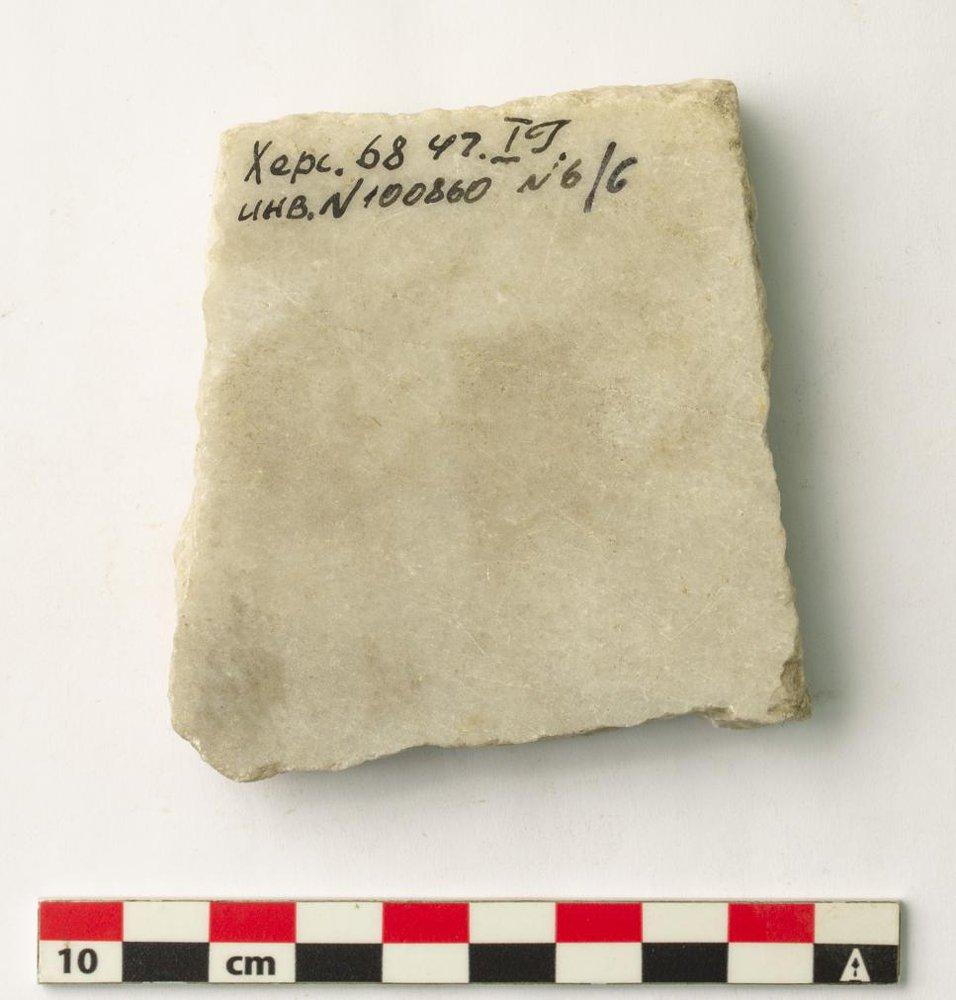 Херс. 68 47. I
инв. N 100860 N 6/6
10 cm